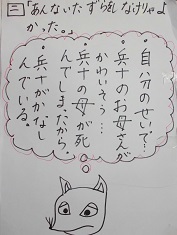 三「あんないたずらをしなけりゃよ
かった。」
自分のせいで?
兵十のお母さんが
かわいそう…
兵十の母が死
んでしまったから、
兵十がかなし
んでいる。